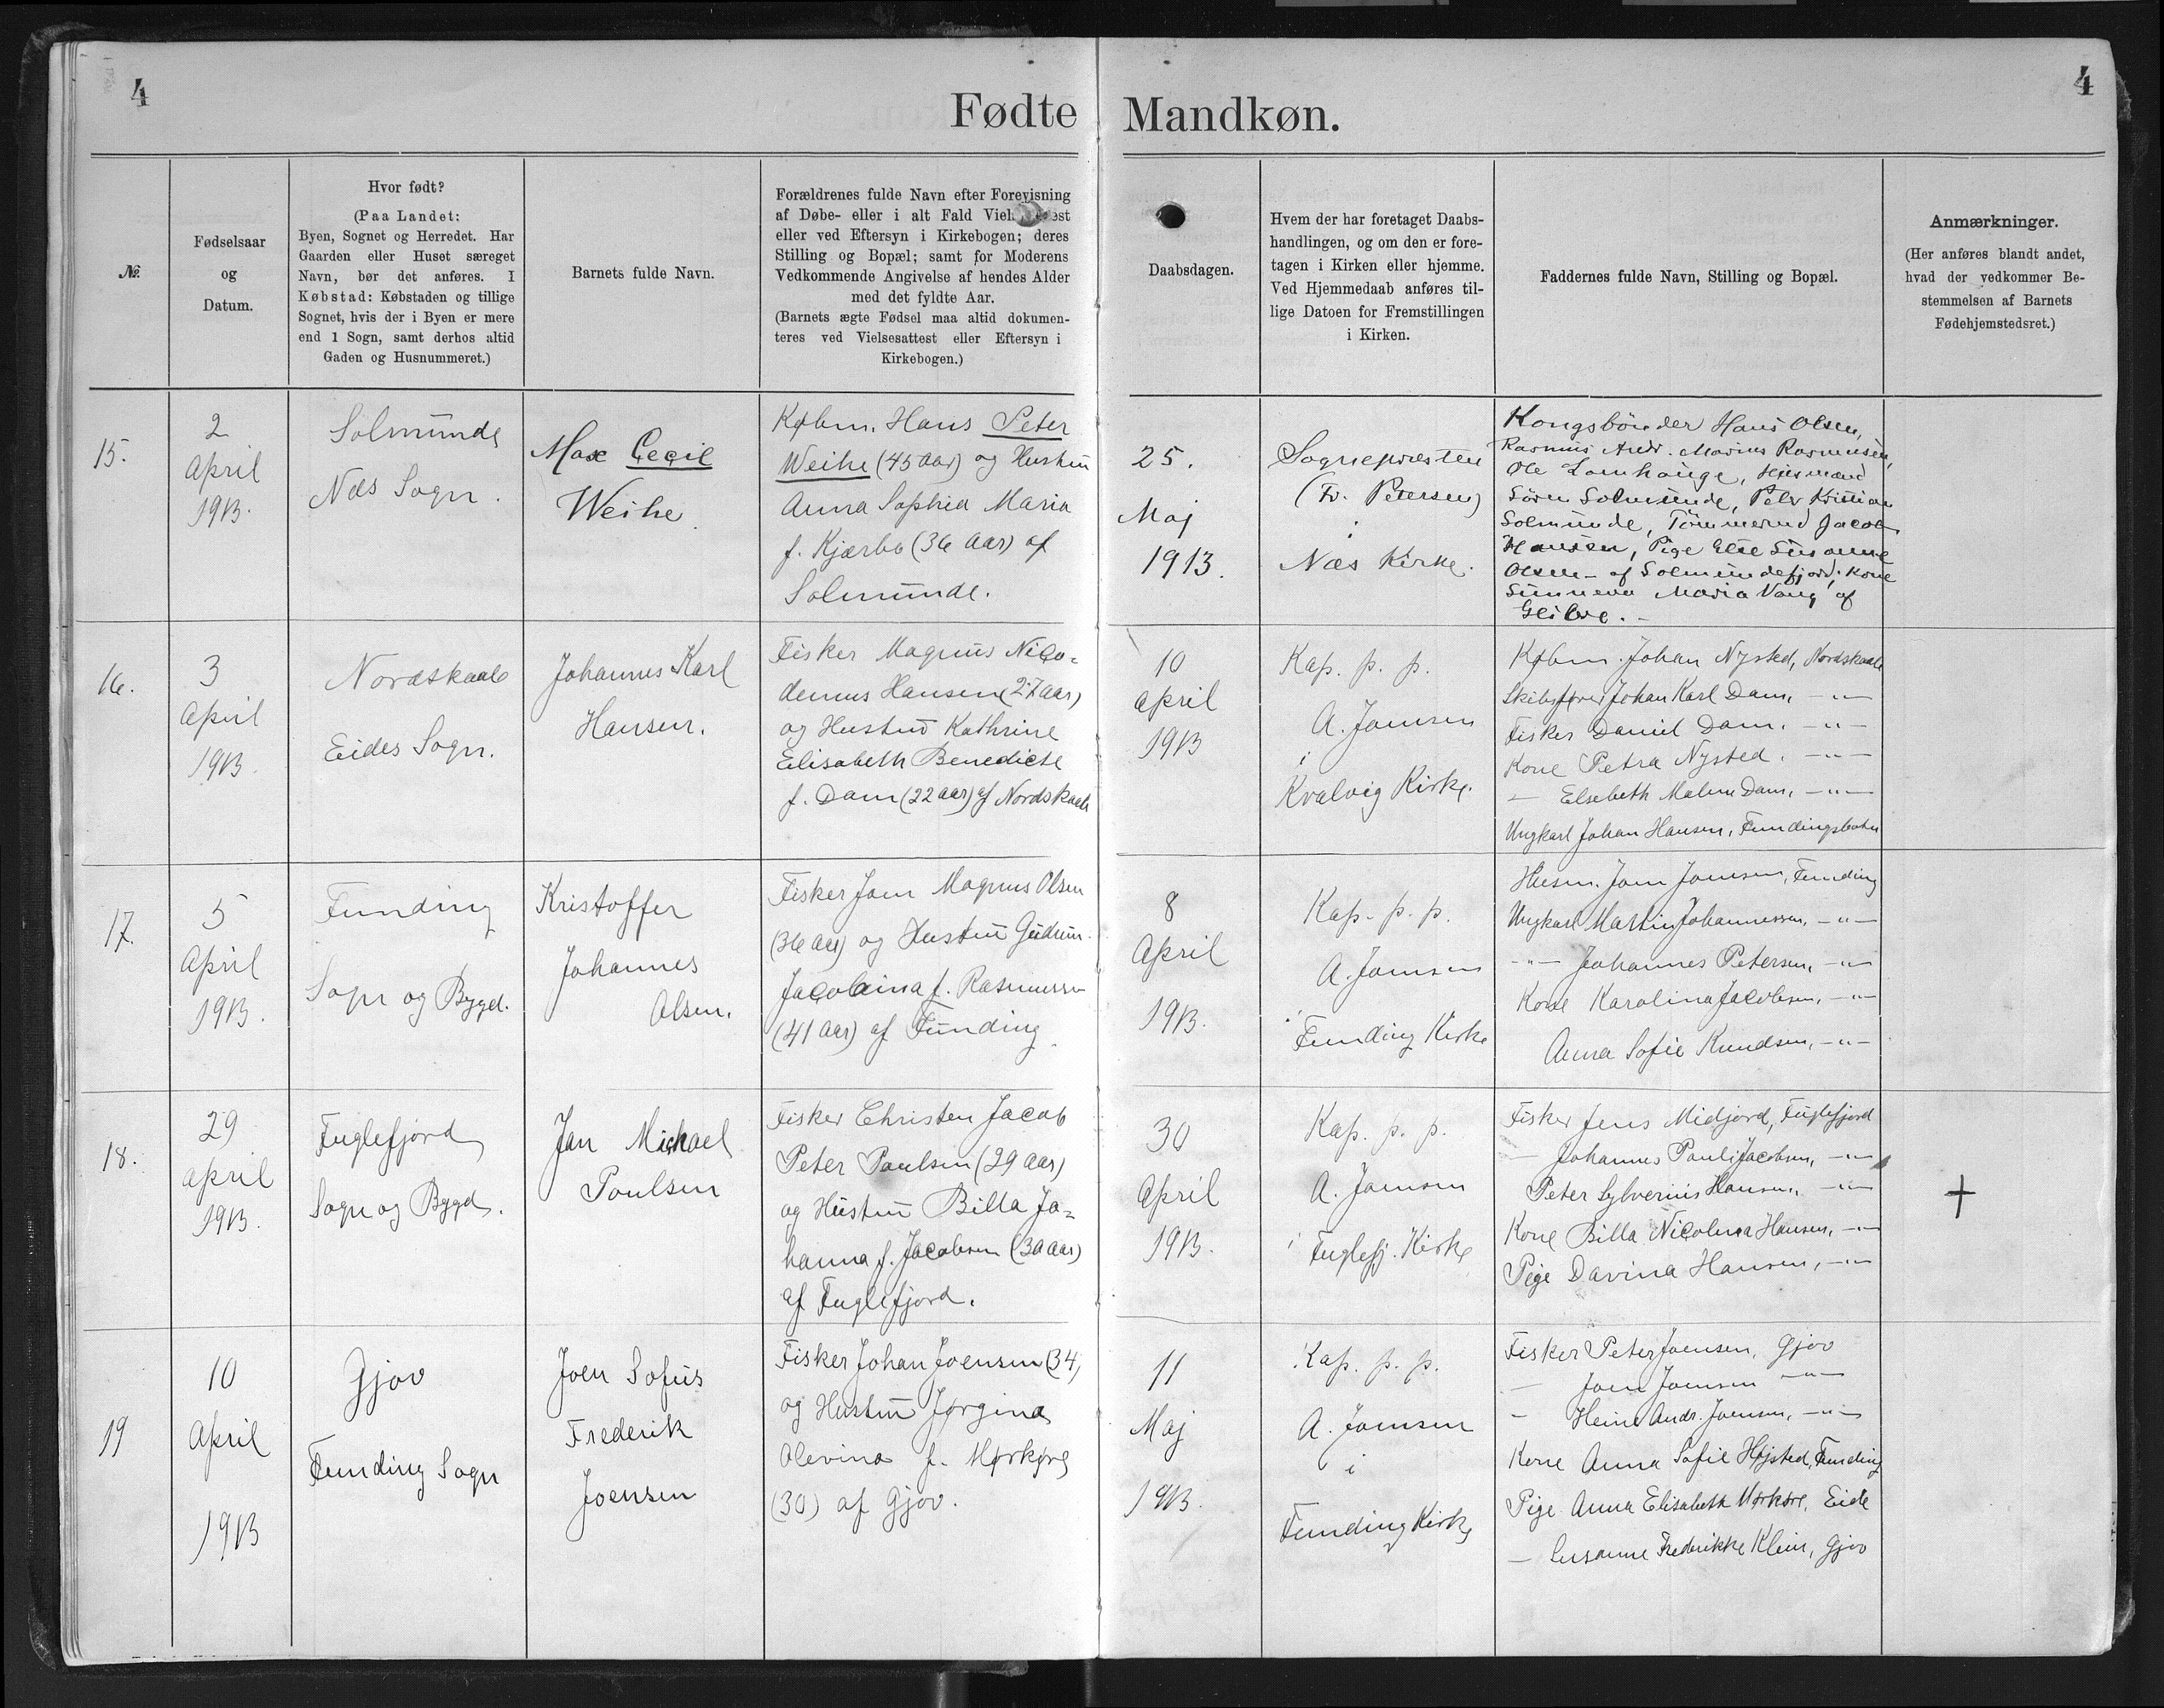 4
4
Fødte Mandkøn.
№.
Fødselsaar
og
Datum.
Hvor født?
(Paa Landet:
Byen, Sognet og Herredet. Har
Gaarden eller Huset særeget
Navn, bør det anføres. I
Købstad: Købstaden og tillige
Sognet, hvis der i Byen er mere
end 1 Sogn, samt derhos altid
Gaden og Husnummeret.)
Barnets fulde Navn.
Forældrenes fulde Navn efter Forevisning
af Døbe- eller i alt Fald
eller ved Eftersyn i Kirkebogen; deres
Stilling og Bopæl; samt for Moderens
Vedkommende Angivelse af hendes Alder
med det fyldte Aar.
(Barnets ægte Fødsel maa altid dokumen-
teres ved Vielsesattest eller Eftersyn i
Kirkebogen.)
Daabsdagen.
Hvem der har foretaget Daabs-
handlingen, og om den er fore-
tagen i Kirken eller hjemme.
Ved Hjemmedaab anføres til-
lige Datoen for Fremstillingen
i Kirken.
Faddernes fulde Navn, Stilling og Bopæl.
Anmærkninger.
(Her anføres blandt andet,
hvad der vedkommer Be-
stemmelsen af Barnets
Fødehjemstedsret.)
15.
2
April
1913.
Solmunde
Næs Sogn.
Max Cecil
Weihe.
Købm. Hans Peter
Weihe (45 Aar) og Hustru
Anna Sophia Maria
f. Kjærbo (36 Aar) af
Solmunde.
25.
Maj
1913.
Sognepræsten
(Fr. Petersen)
i
Næs Kirke.
Kongsbönder Hans Olsen,
Rasmus Andr. Marius Rasmussen,
Ole Lomhöige, Husmand
Sören Solmunde, Peter Kristian
Solmunde, Tömmermd Jacob
Hanssen, Pige Else Susanne
Olsen - af Solmundefjord, Kone
Sunneva Maria Vang af
Glibre. -
16.
3
April
1913.
Nordskaale
Eides Sogn.
Johannes Karl
Hansen.
Fisker Magnus Nico-
demus Hansen (27 aar)
og Hustru Kathrine
Elisabeth Benedicte
f. Dam (22 aar) af Nordskaale
10
April
1913
Kap. p. p.
A. Joensen
i
Kvalvig Kirke.
Købm. Johan Nysted, Nordskaale
Skibsfører Johan Karl Dam, -"-
Fisker Daniel Dam. -"-
Kone Petra Nysted. -"-
- Elsebeth Malene Dam, -"-
Ungkarl Johan Hansen, Fundingsbotn
17.
5
April
1913.
Funding
Sogn og Bygd.
Kristoffer
Johannes
Olsen.
Fisker Joen Magnus Olsen
(36 aar) og Hustru Gudrun
Jacobina f. Rasmussen
(41 Aar) af Funding.
8
April
1913.
Kap. p. p.
A. Joensen
i
Funding Kirke
Husm. Joen Joensen, Funding
Ungkarl Martin Johannessen, -"-
-"- Johannes Petersen, -"-
Kone Karolina Jacobsen, -"-
Anna Sofie Knudsen, -"-
18.
29
April
1913.
Fuglefjord
Sogn og Bygd.
Jan Michael
Poulsen
Fisker Christen Jacob
Peter Poulsen (29 Aar)
og Hustru Billa Jo-
hanna f. Jacobsen (30 Aar)
af Fuglefjord.
30
April
1913.
Kap. p. p.
A. Joensen
i Fuglefj. Kirke
Fisker Jens Midjord, Fuglefjord
- Johannes Pauli Jacobsen, -"-
Peter Sylverius Hansen, -"-
Kone Billa Nicolina Hansen, -"-
Pige Davina Hansen, -"-
†
19
10
April
1913
Gjov
Funding Sogn
Joen Sofus
Frederik
Joensen
Fisker Johan Joensen (34)
og Hustru Jørgina
Olevina f. Mørkøre
(30) af Gjov.
11
Maj
1913.
Kap. p. p.
A. Joensen
i
Funding Kirke
Fisker Peter Joensen, Gjov
- Joen Joensen -"-
- Heine Andr. Joensen, -"-
Kone Anna Sofie Højsted, Funding
Pige Anna Elisabeth Mørkøre, Eide
- Susanne Frederikke Klein, Gjov